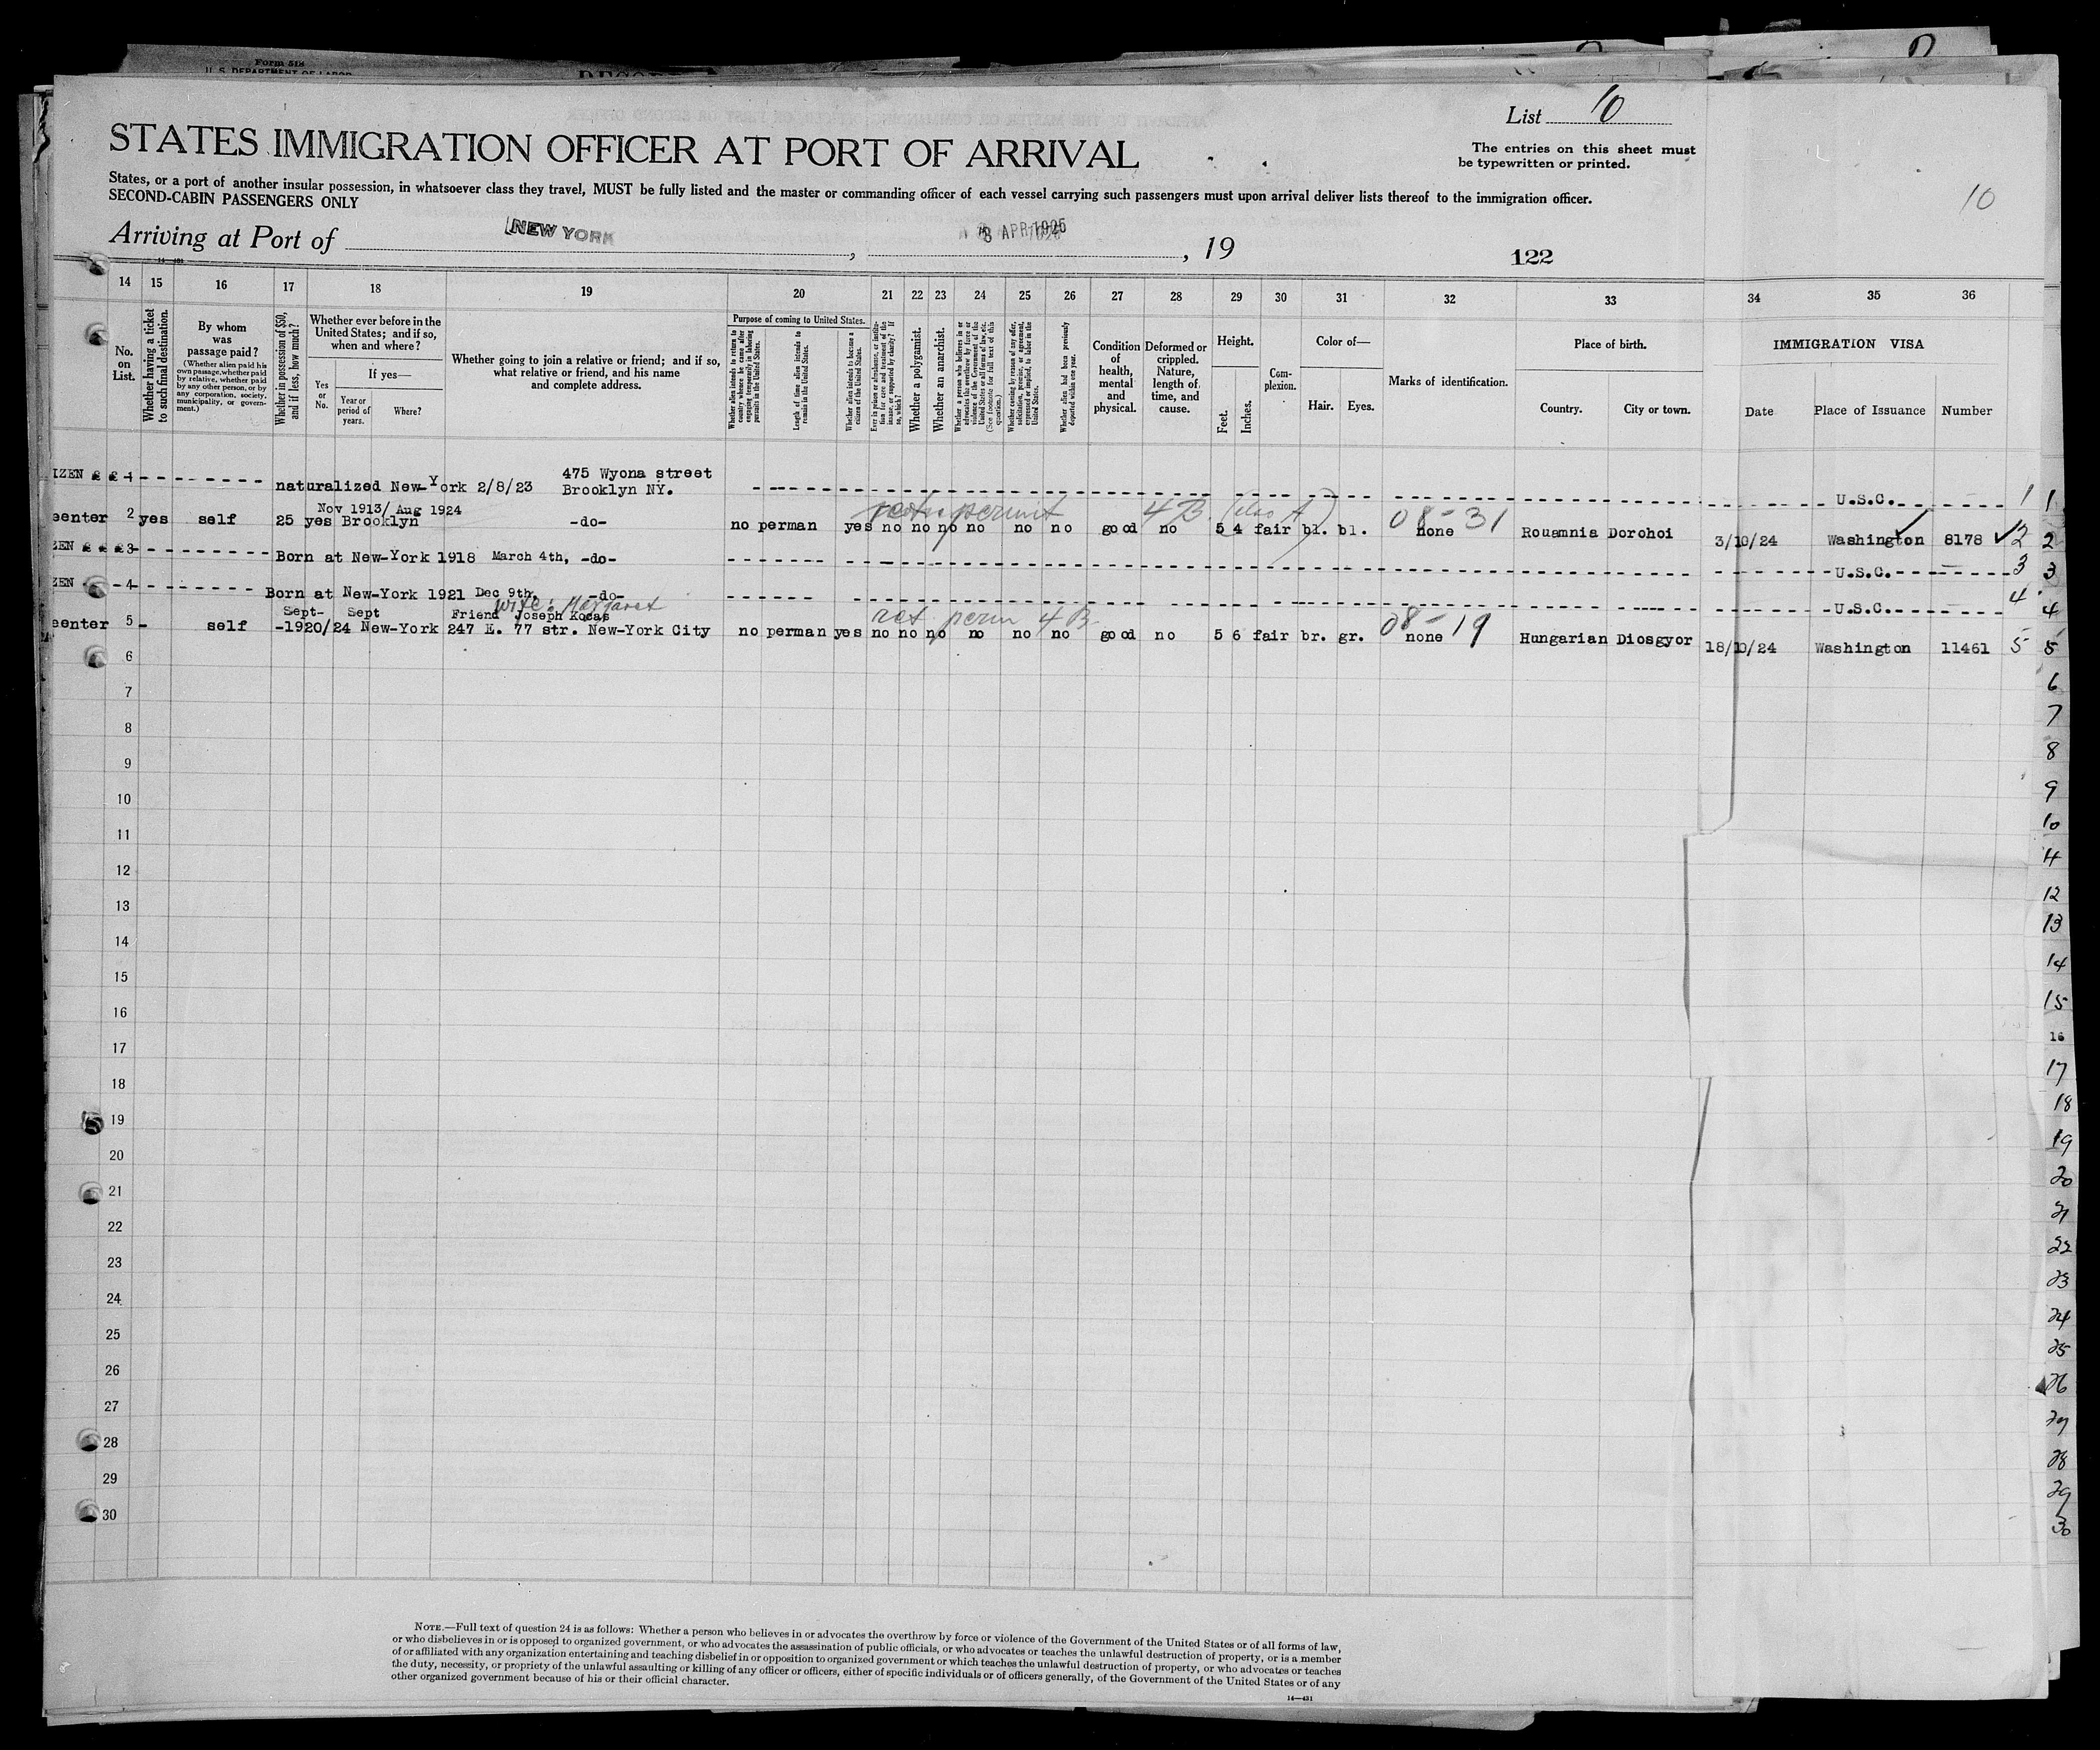 Form 518
U. S. DEPARTMENT OF LABOR
List 10
STATES IMMIGRATION OFFICER AT PORT OF ARRIVAL
The entries on this sheet must
be typewritten or printed.
States, or a port of another insular possession, in whatsoever class they travel, MUST be fully listed and the master or commanding officer of each vessel carrying such passengers must upon arrival deliver lists thereof to the immigration officer.
SECOND-CABIN PASSENGERS ONLY
10
Arriving at Port of NEW YORK, 3 APR 1925, 19
122
14—431
14 15 16 17 18 19 20 21 22 23 24 25 26 27 28 29 30 31 32 33 34 35 36
No. on List.
Whether having a ticket to such final destination.
By whom was passage paid?
(Whether alien paid his own passage, whether paid by relative, whether paid by any other person, or by any corporation, society, municipality, or government.)
Whether in possession of $50, and if less, how much?
Whether ever before in the United States; and if so, when and where?
Yes or No.
If yes—
Year or period of years.
Where?
Whether going to join a relative or friend; and if so, what relative or friend, and his name and complete address.
Purpose of coming to United States.
Whether alien intends to return to country whence he came after engaging temporarily in laboring pursuits in the United States.
Length of time alien intends to remain in the United States.
Whether alien intends to become a citizen of the United States.
Ever in prison or almshouse, or institution for care and treatment of the insane, or supported by charity? If so, which?
Whether a polygamist.
Whether an anarchist.
Whether a person who believes in or advocates the overthrow by force or violence of the Government of the United States or all forms of law, etc. (See footnote for full text of this question.)
Whether coming by reason of any offer, solicitation, promise, or agreement, expressed or implied, to labor in the United States.
Whether alien had been previously deported within one year.
Condition of health, mental and physical.
Deformed or crippled. Nature, length of time, and cause.
Height.
Feet. Inches.
Complexion.
Color of—
Hair. Eyes.
Marks of identification.
Place of birth.
Country. City or town.
IMMIGRATION VISA
Date Place of Issuance Number
IZEN 1 naturalized New-York 2/8/23 475 Wyona street
Brooklyn NY. U.S.C. 1 1
Nov 1913/ Aug 1924 return permit 4B (also A) 08-31
eenter 2 yes self 25 yes Brooklyn -do- no perman yes no no no no no no good no 5 4 fair bl. bl. none Rouamnia Dorohoi 3/10/24 Washington 8178 2 2
ZEN 3 Born at New-York 1918 March 4th, -do- U.S.C. 3 3
ZEN 4 Born at New-York 1921 Dec 9th, -do- U.S.C. 4 4
wife: Margaret
Sept- Sept Friend Joseph Kocas ret perm 4B 08-19
eenter 5 - self -1920/24 New-York 247 E. 77 str. New-York City no perman yes no no no no no no good no 5 6 fair br. gr. none Hungarian Diosgyor 18/10/24 Washington 11461 5 5
6 6
7 7
8 8
9 9
10 10
11 11
12 12
13 13
14 14
15 15
16 16
17 17
18 18
19 19
20 20
21 21
22 22
23 23
24 24
25 25
26 26
27 27
28 28
29 29
30 30
NOTE.—Full text of question 24 is as follows: Whether a person who believes in or advocates the overthrow by force or violence of the Government of the United States or of all forms of law,
or who disbelieves in or is opposed to organized government, or who advocates the assassination of public officials, or who advocates or teaches the unlawful destruction of property, or is a member
of or affiliated with any organization entertaining and teaching disbelief in or opposition to organized government or which teaches the unlawful destruction of property, or who advocates or teaches
the duty, necessity, or propriety of the unlawful assaulting or killing of any officer or officers, either of specific individuals or of officers generally, of the Government of the United States or of any
other organized government because of his or their official character.
14—431